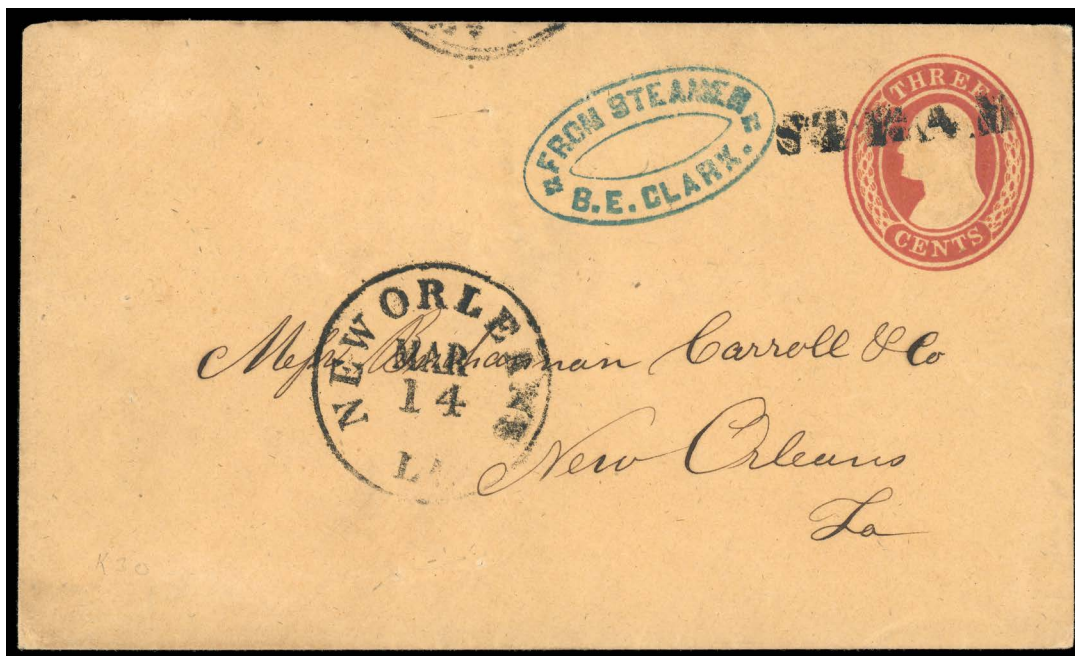 FROM STEAMER
B. E. CLARK.
THREE
CENTS
STEAM
NEW ORLEANS
MAR
14
LA
Messrs Buchannan Carroll & Co
New Orleans
La
K30